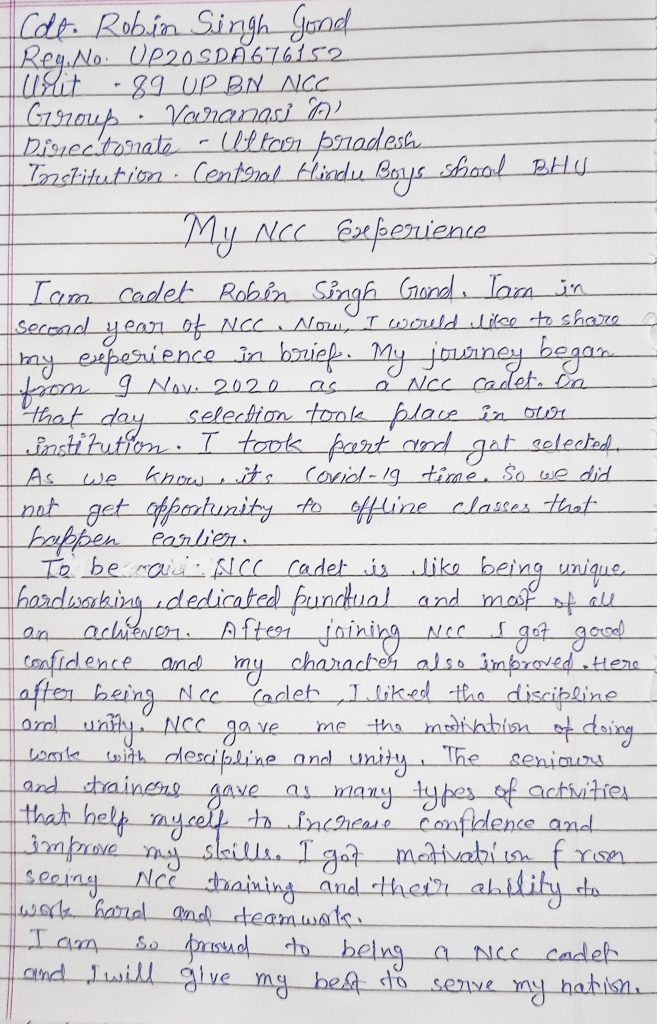 Cdt. Robin Singh Gond
Reg.No. UP20SDA676152
Unit - 89 UP BN NCC
Group - Varanasi 'A'
Directorate - Uttar pradesh
Institution - Central Hindu Boys shool BHU
My NCC Experience
I am cadet Robin Singh Gond. I am in
second year of NCC. Now, I would like to share
my experience in brief. My journey began
from 9 Nov. 2020 as a NCC cadet. On
that day selection took place in our
institution. I took part and got selected.
As we know, its Covid-19 time. So we did
not get opportunity to offline classes that
happen earlier.
To be NCC cadet is like being unique,
hardworking, dedicated punctual and most of all
an achiever. After joining NCC I got good
confidence and my character also improved. Here
after being NCC cadet, I liked the discipline
and unity. NCC gave me the motivation of doing
work with descipline and unity. The seniours
and trainers gave as many types of activities
that help mycelf to increase confidence and
improve my skills. I got motivation from
seeing NCC training and their ability to
work hard and teamwork.
I am so proud to being a NCC cadet
and I will give my best to serve my nation.